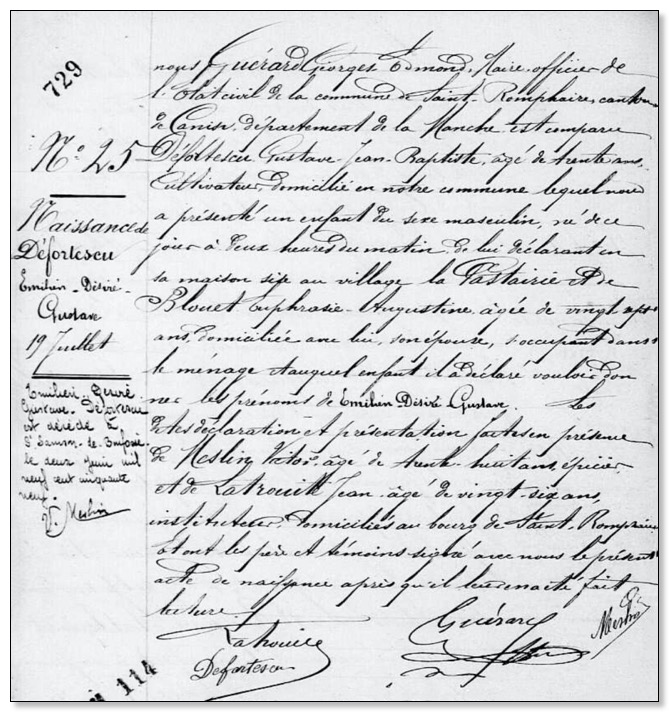 729
N° 25
Naissance de
Défortescu
Emilien-Désiré-
Gustave
19 Juillet
Gustave Défortescu
est décédé à
le deux juin mil
neuf cent cinquante
neuf.
V. Meslin
nous Guérard Georges Edmond, Maire, officier de
l'Etat civil de la commune de Saint-Romphaire, canton
de Canisy, département de la Manche est comparu
Défortescu Gustave-Jean-Baptiste, âgé de trente ans,
Cultivateur, domicilié en notre commune lequel nous
a présenté un enfant du sexe masculin, né de ce
jour à deux heures du matin, de lui déclarant en
sa maison sise au village la et de
Blouet Euphrasie-Augustine, âgée de vingt sept
ans, domiciliée avec lui, son épouse, s'occupant dans
le ménage et auquel enfant il a déclaré vouloir don
ner les prénoms de Emilien Désiré Gustave. Les
dites déclaration et présentation faites en présence
de Meslin Victor, âgé de trente-huit ans, épicier
et de Latrouite Jean, âgé de vingt-six ans,
instituteur, domiciliés au bourg de Saint-Romphaire
Et ont les père et témoins signé avec nous le présent
acte de naissance après qu'il leur en a été fait
lecture
Latrouite
Guérard
Meslin
Défortescu
114